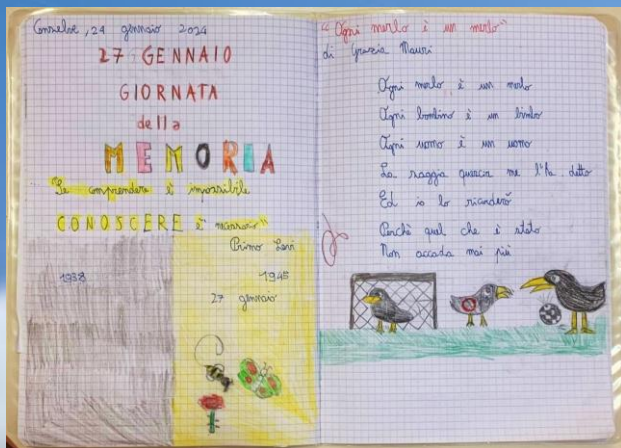 Conselve, 24 gennaio 2024
27 GENNAIO
GIORNATA
della
MEMORIA
"Se comprendere è impossibile
CONOSCERE è necessario"
Primo Levi
1938
1945
27 gennaio
"Ogni merlo è un merlo"
di Grazia Mauri
Ogni merlo è un merlo
Ogni bambino è un bimbo
Ogni uomo è un uomo
La saggia quercia me l'ha detto
Ed io lo ricorderò
Perchè quel che è stato
Non accada mai più